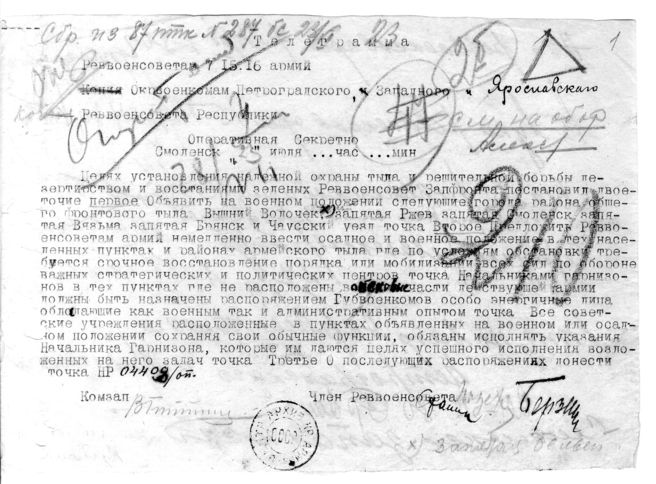 Сбр из 87 птк N 287 бс 23/6 23
Телеграмма
1
Реввоенсоветам 7 15.16 армий
Копия Окрвоенкомам Петроградского, Западного и Ярославского
Реввоенсовета Республики
см. на обор
Оперативная Секретно
Смоленск "23" июля ...час ...мин
Целях установления надежной охраны тыла и решительной борьбы де-
зертирством и восстаниями зеленых Реввоенсовет Запфронта постановил двое-
точие первое Объявить на военном положении следующие города района обще-
го фронтового тыла Вышний Волочек запятая Ржев запятая Смоленск запя-
тая Вязьма запятая Брянск и Чаусский уезд точка Второе Предложить Ревво-
енсоветам армий немедленно ввести осадное и военное положение в тех насе-
ленных пунктах и районах армейского тыла где по условиям обстановки тре-
буется срочное восстановление порядка или мобилизации всех сил по обороне
важных стратегических и политических центров точка Начальниками гарнизо-
нов в тех пунктах где не расположены войсковые части действующей армии
должны быть назначены распоряжением Губвоенкомов особо энергичные лица
обладающие как военным так и административным опытом точка Все совет-
ские учреждения расположенные в пунктах объявленных на военном или осад-
ном положении сохраняя свои обычные функции, обязаны исполнять указания
Начальника Гарнизона, которые им даются целях успешного исполнения возло-
женных на него задач точка Третье О последующих распоряжениях донести
точка НР 04409/оп.
Комзап Член Реввоенсовета Берзин
СССР